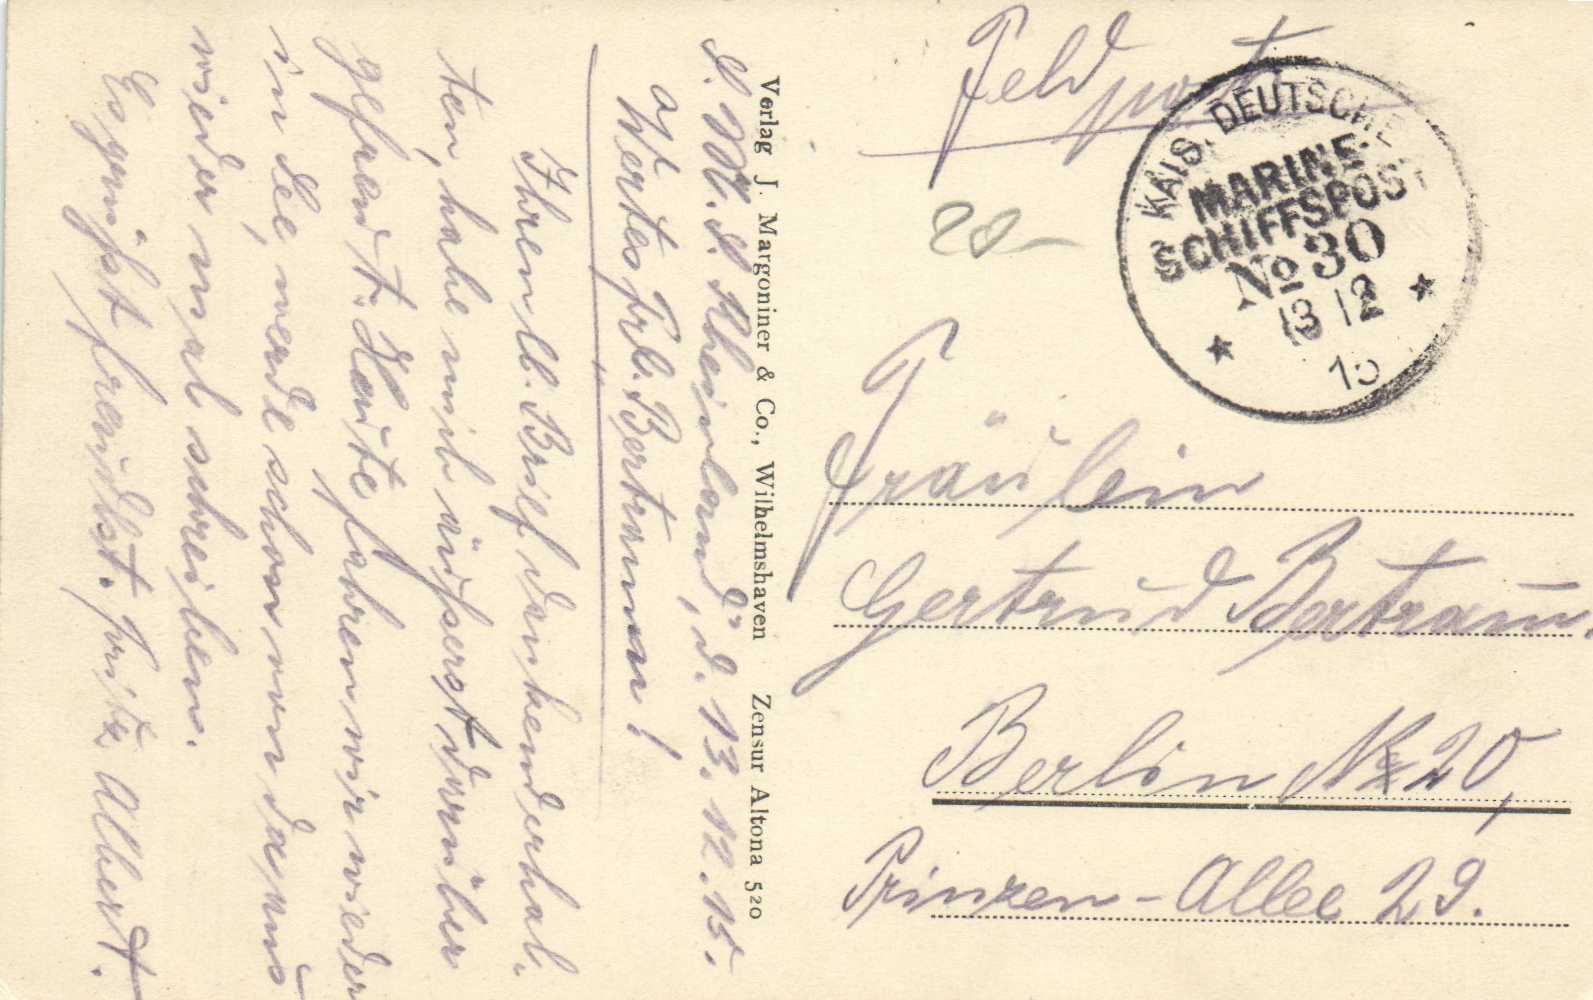 Feldpost
KAIS. DEUTSCHE
MARINE-
SCHIFFSPOST
No 30
13 12
15
20-
Fräulein
Gertrud Bertram.
Berlin N 20,
Prinzen-Allee 29.
Verlag J. Margoniner & Co., Wilhelmshaven Zensur Altona 520
S. M. S. Rheinland, d. 13. 12. 15.
Wertes Frl. Bertram!
Ihren lb. Brief dankend erhal-
ten, habe mich äußerst darüber
gefreut. Heute fahren wir wieder
in See, werde schon von da aus
wieder mal schreiben.
Es grüßt freundlst. Fritz Albert.